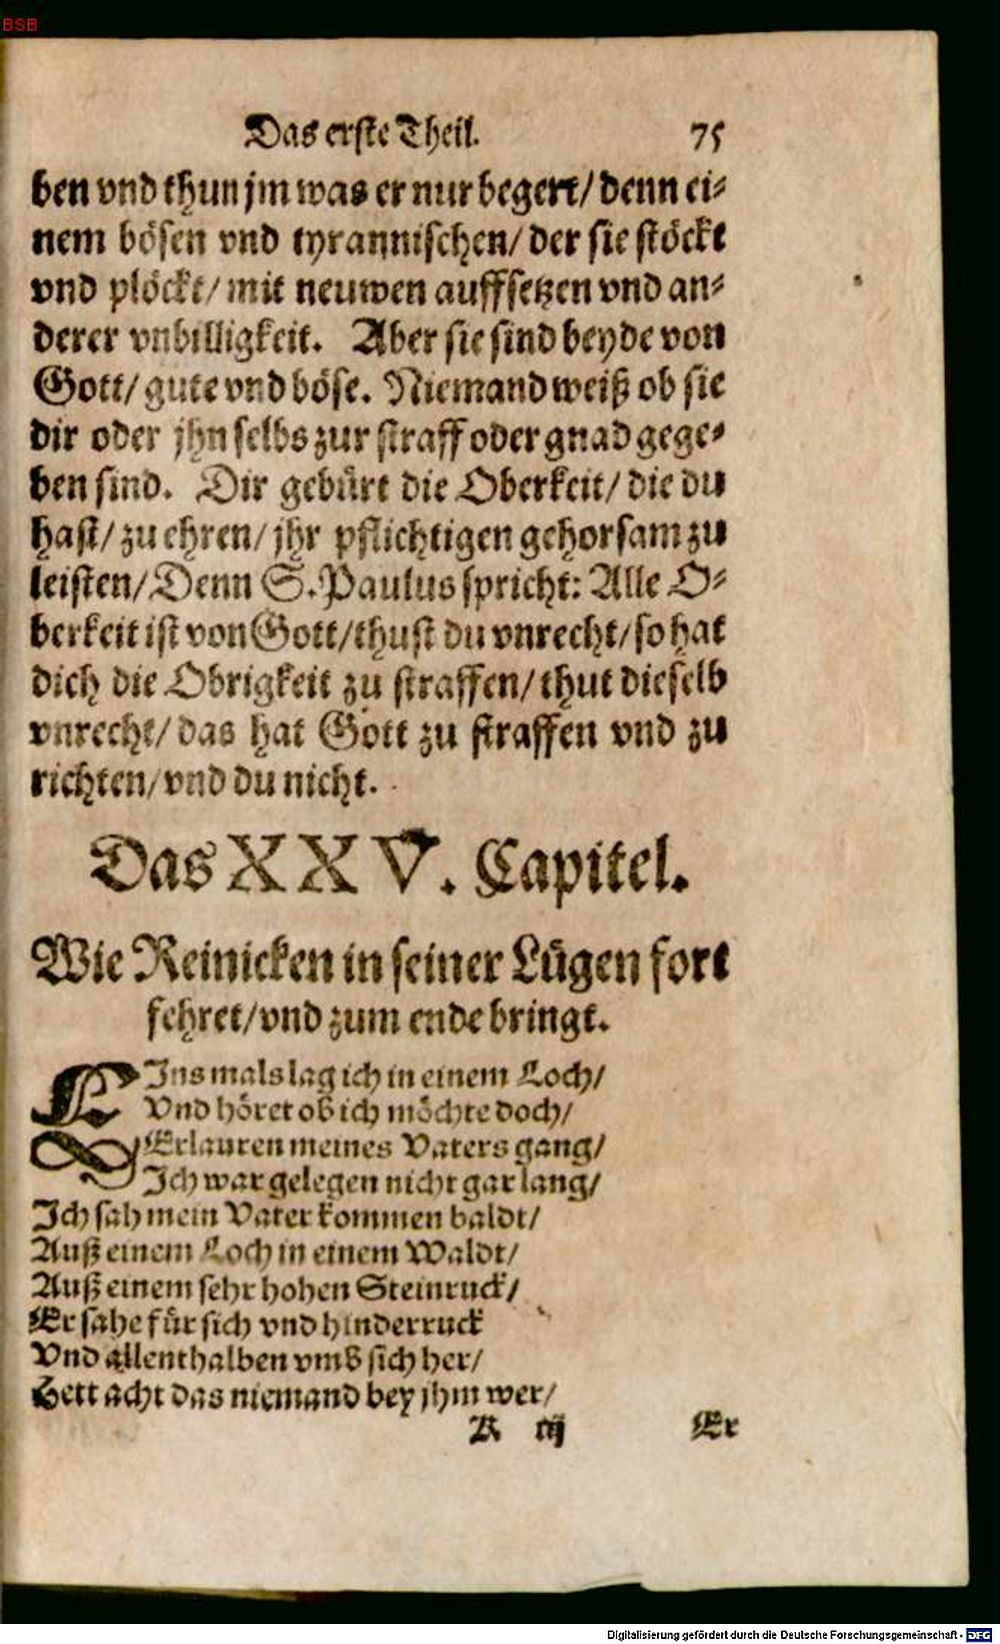 BSB
Das erste Theil. 75
ben vnd thun jm was er nur begert/ denn ei-
nem bösen vnd tyrannischen/ der sie stöckt
vnd plöckt/ mit neuwen auffsetzen vnd an-
derer vnbilligkeit. Aber sie sind beyde von
Gott/ gute vnd böse. Niemand weiß ob sie
dir oder jhn selbs zur straff oder gnad gege-
ben sind. Dir gebürt die Oberkeit/ die du
hast/ zu ehren/ jhr pflichtigen gehorsam zu
leisten/ Denn S. Paulus spricht: Alle O-
berkeit ist von Gott/ thust du vnrecht/ so hat
dich die Obrigkeit zu straffen/ thut dieselb
vnrecht/ das hat Gott zu straffen vnd zu
richten/ vnd du nicht.
Das XXV. Capitel.
Wie Reinicken in seiner Lügen fort
fehret/ vnd zum ende bringt.
EJns mals lag ich in einem Loch/
Vnd höret ob ich möchte doch/
Erlauren meines Vaters gang/
Ich war gelegen nicht gar lang/
Ich sah mein Vater kommen baldt/
Auß einem Loch in einem Waldt/
Auß einem sehr hohen Steinruck/
Er sahe für sich vnd hinderruck
Vnd allenthalben vmb sich her/
Hett acht das niemand bey jhm wer/
K iij Er
Digitalisierung gefördert durch die Deutsche Forschungsgemeinschaft - DFG